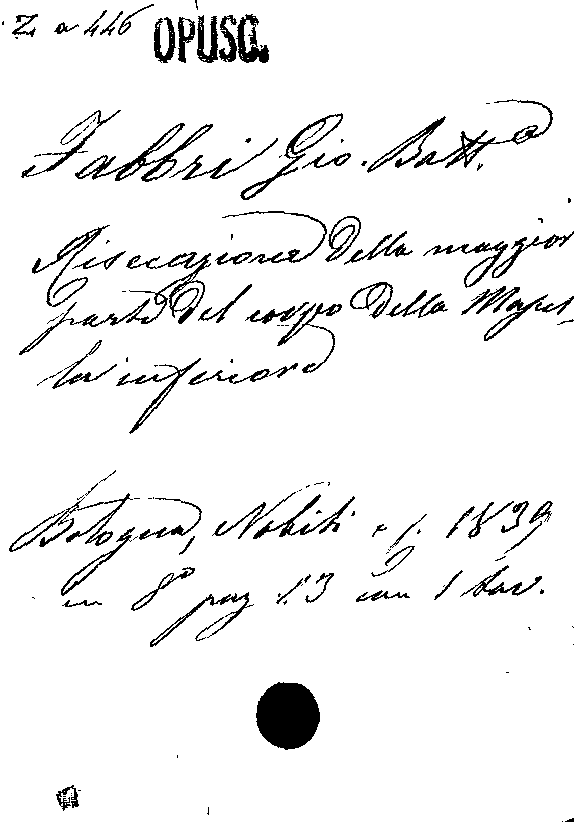 Z. a 446 OPUSC.
Fabbri Gio. Batt.a
Risecazione della maggior
parte del corpo della Mascel-
la inferiore
Bologna, Nobili e C. 1839
in 8° pag 13 con 1 tav.